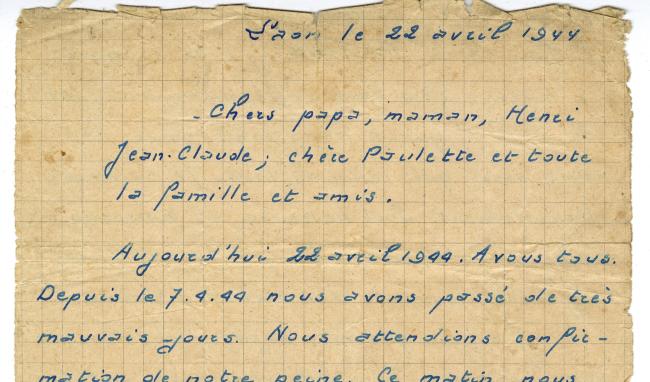 Laon le 22 avril 1944
- Chers papa, maman, Henri
Jean-Claude; chère Paulette et toute
la famille et amis.
Aujourd'hui 22 avril 1944. A vous tous.
Depuis le 7.4.44 nous avons passé de très
mauvais jours. Nous attendions confir-
mation de notre peine. Ce matin nous